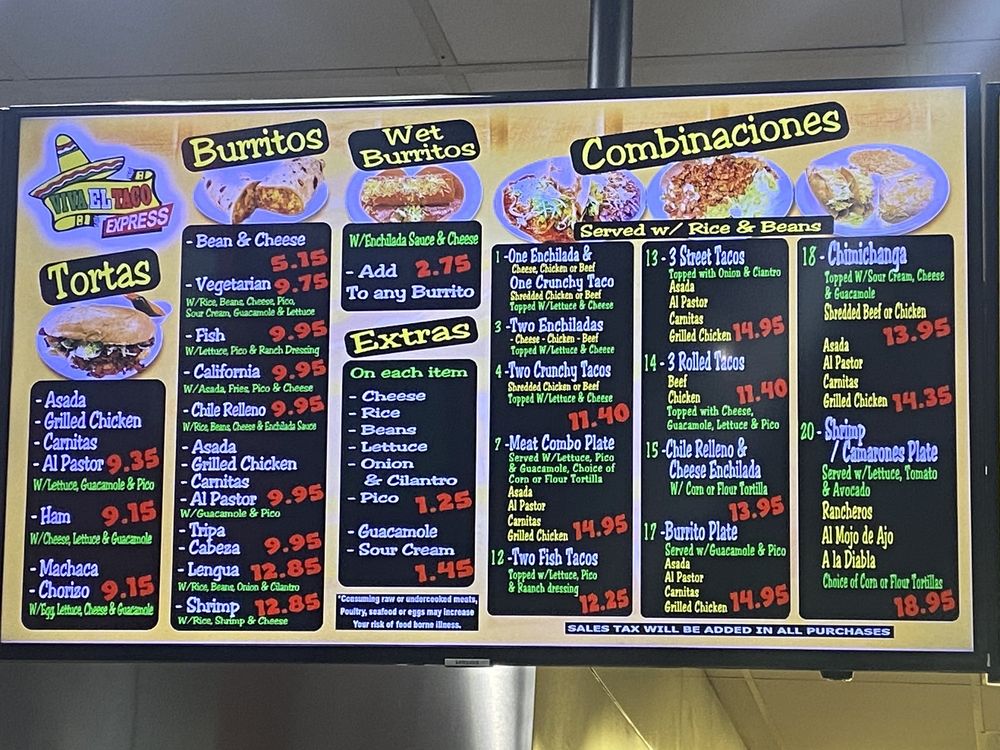 VIVA EL TACO
EXPRESS
Tortas
- Asada
- Grilled Chicken
- Carnitas
- Al Pastor 9.35
W/Lettuce, Guacamole & Pico
- Ham 9.15
W/Cheese, Lettuce & Guacamole
- Machaca
- Chorizo 9.15
W/Egg, Lettuce, Cheese & Guacamole
Burritos
- Bean & Cheese
5.15
- Vegetarian 9.75
W/Rice, Beans, Cheese, Pico,
Sour Cream, Guacamole & Lettuce
- Fish 9.95
W/Lettuce, Pico & Ranch Dressing
- California 9.95
W/Asada, Fries, Pico & Cheese
- Chile Relleno 9.95
W/Rice, Beans, Cheese & Enchilada Sauce
- Asada
- Grilled Chicken
- Carnitas
- Al Pastor 9.95
W/Guacamole & Pico
- Tripa
- Cabeza 9.95
- Lengua 12.85
W/Rice, Beans, Onion & Cilantro
- Shrimp 12.85
W/Rice, Shrimp & Cheese
Wet
Burritos
W/Enchilada Sauce & Cheese
- Add 2.75
To any Burrito
Extras
On each item
- Cheese
- Rice
- Beans
- Lettuce
- Onion
& Cilantro
- Pico 1.25
- Guacamole
- Sour Cream
1.45
*Consuming raw or undercooked meats,
Poultry, seafood or eggs may increase
Your risk of food borne illness.
Combinaciones
Served w/ Rice & Beans
1 -One Enchilada &
Cheese, Chicken or Beef
One Crunchy Taco
Shredded Chicken or Beef
Topped W/Lettuce & Cheese
3 -Two Enchiladas
- Cheese - Chicken - Beef
Topped W/Lettuce & Cheese
4 -Two Crunchy Tacos
Shredded Chicken or Beef
Topped W/Lettuce & Cheese
11.40
7 -Meat Combo Plate
Served W/Lettuce, Pico
& Guacamole, Choice of
Corn or Flour Tortilla
Asada
Al Pastor
Carnitas
Grilled Chicken 14.95
12 -Two Fish Tacos
Topped w/Lettuce, Pico
& Raanch dressing
12.25
13 - 3 Street Tacos
Topped with Onion & Ciantro
Asada
Al Pastor
Carnitas
Grilled Chicken 14.95
14 - 3 Rolled Tacos
Beef
Chicken 11.40
Topped with Cheese,
Guacamole, Lettuce & Pico
15 -Chile Relleno &
Cheese Enchilada
W/ Corn or Flour Tortilla
13.95
17 -Burrito Plate
Served w/Guacamole & Pico
Asada
Al Pastor
Carnitas
Grilled Chicken 14.95
18 - Chimichanga
Topped W/Sour Cream, Cheese
& Guacamole
Shredded Beef or Chicken
13.95
Asada
Al Pastor
Carnitas
Grilled Chicken 14.35
20 - Shrimp
/ Camarones Plate
Served w/Lettuce, Tomato
& Avocado
Rancheros
Al Mojo de Ajo
A la Diabla
Choice of Corn or Flour Tortillas
18.95
SALES TAX WILL BE ADDED IN ALL PURCHASES
SAMSUNG